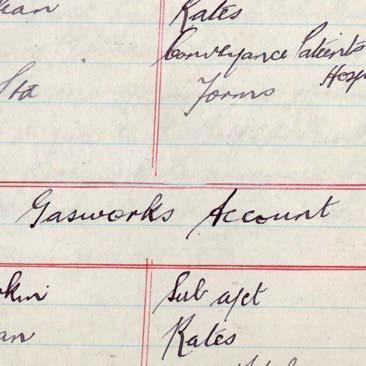 Rates
Conveyance Patients
Hosp
Std Forms
Gasworks Account
Sub a/ct
Rates